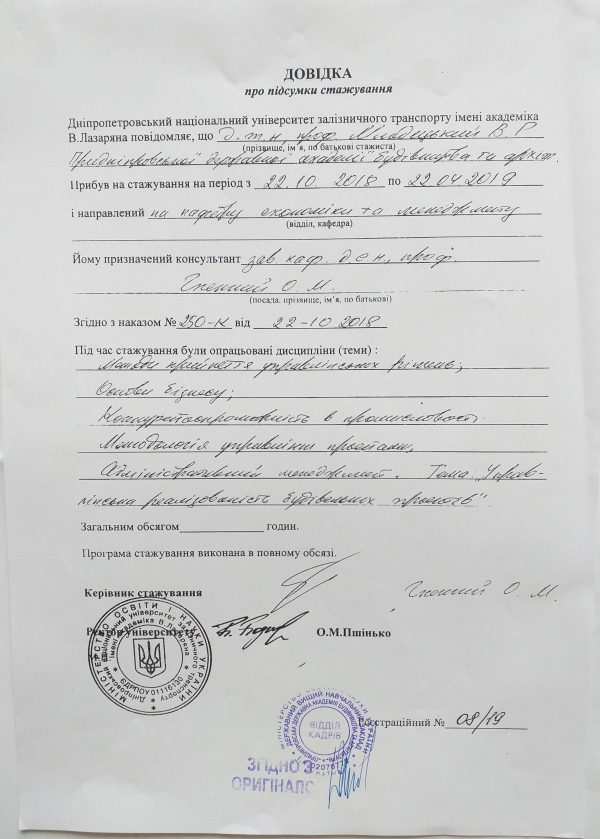 ДОВІДКА
про підсумки стажування
Дніпропетровський національний університет залізничного транспорту імені академіка
В.Лазаряна повідомляє, що д.т.н, проф.
(прізвище, ім'я, по батькові стажиста)
Придніпровської державної академії будівництва та архіт.
Прибув на стажування на період з 22.10. 2018 по 22.04.2019
і направлений на кафедру економіки та менеджменту
(відділ, кафедра)
Йому призначений консультант зав. каф. д.е.н., проф.
О. М.
(посада, прізвище, ім'я, по батькові)
Згідно з наказом № 250-к від 22-10 2018
Під час стажування були опрацьовані дисципліни (теми) :
Методи прийняття управлінських рішень;
Основи бізнесу;
Конкурентоспроможність в промисловості.
Методологія управління проектами,
Адміністративний менеджмент. Тема "Управ-
лінська реалізованість будівельних проектів"
Загальним обсягом______________ годин.
Програма стажування виконана в повному обсязі.
Керівник стажування О. М.
Ректор університету О.М.Пшінько
МІНІСТЕРСТВО ОСВІТИ І НАУКИ УКРАЇНИ
ЄДРПОУ 01116130
Реєстраційний № 08/19
ВІДДІЛ
КАДРІВ
ЗГІДНО З
ОРИГІНАЛО